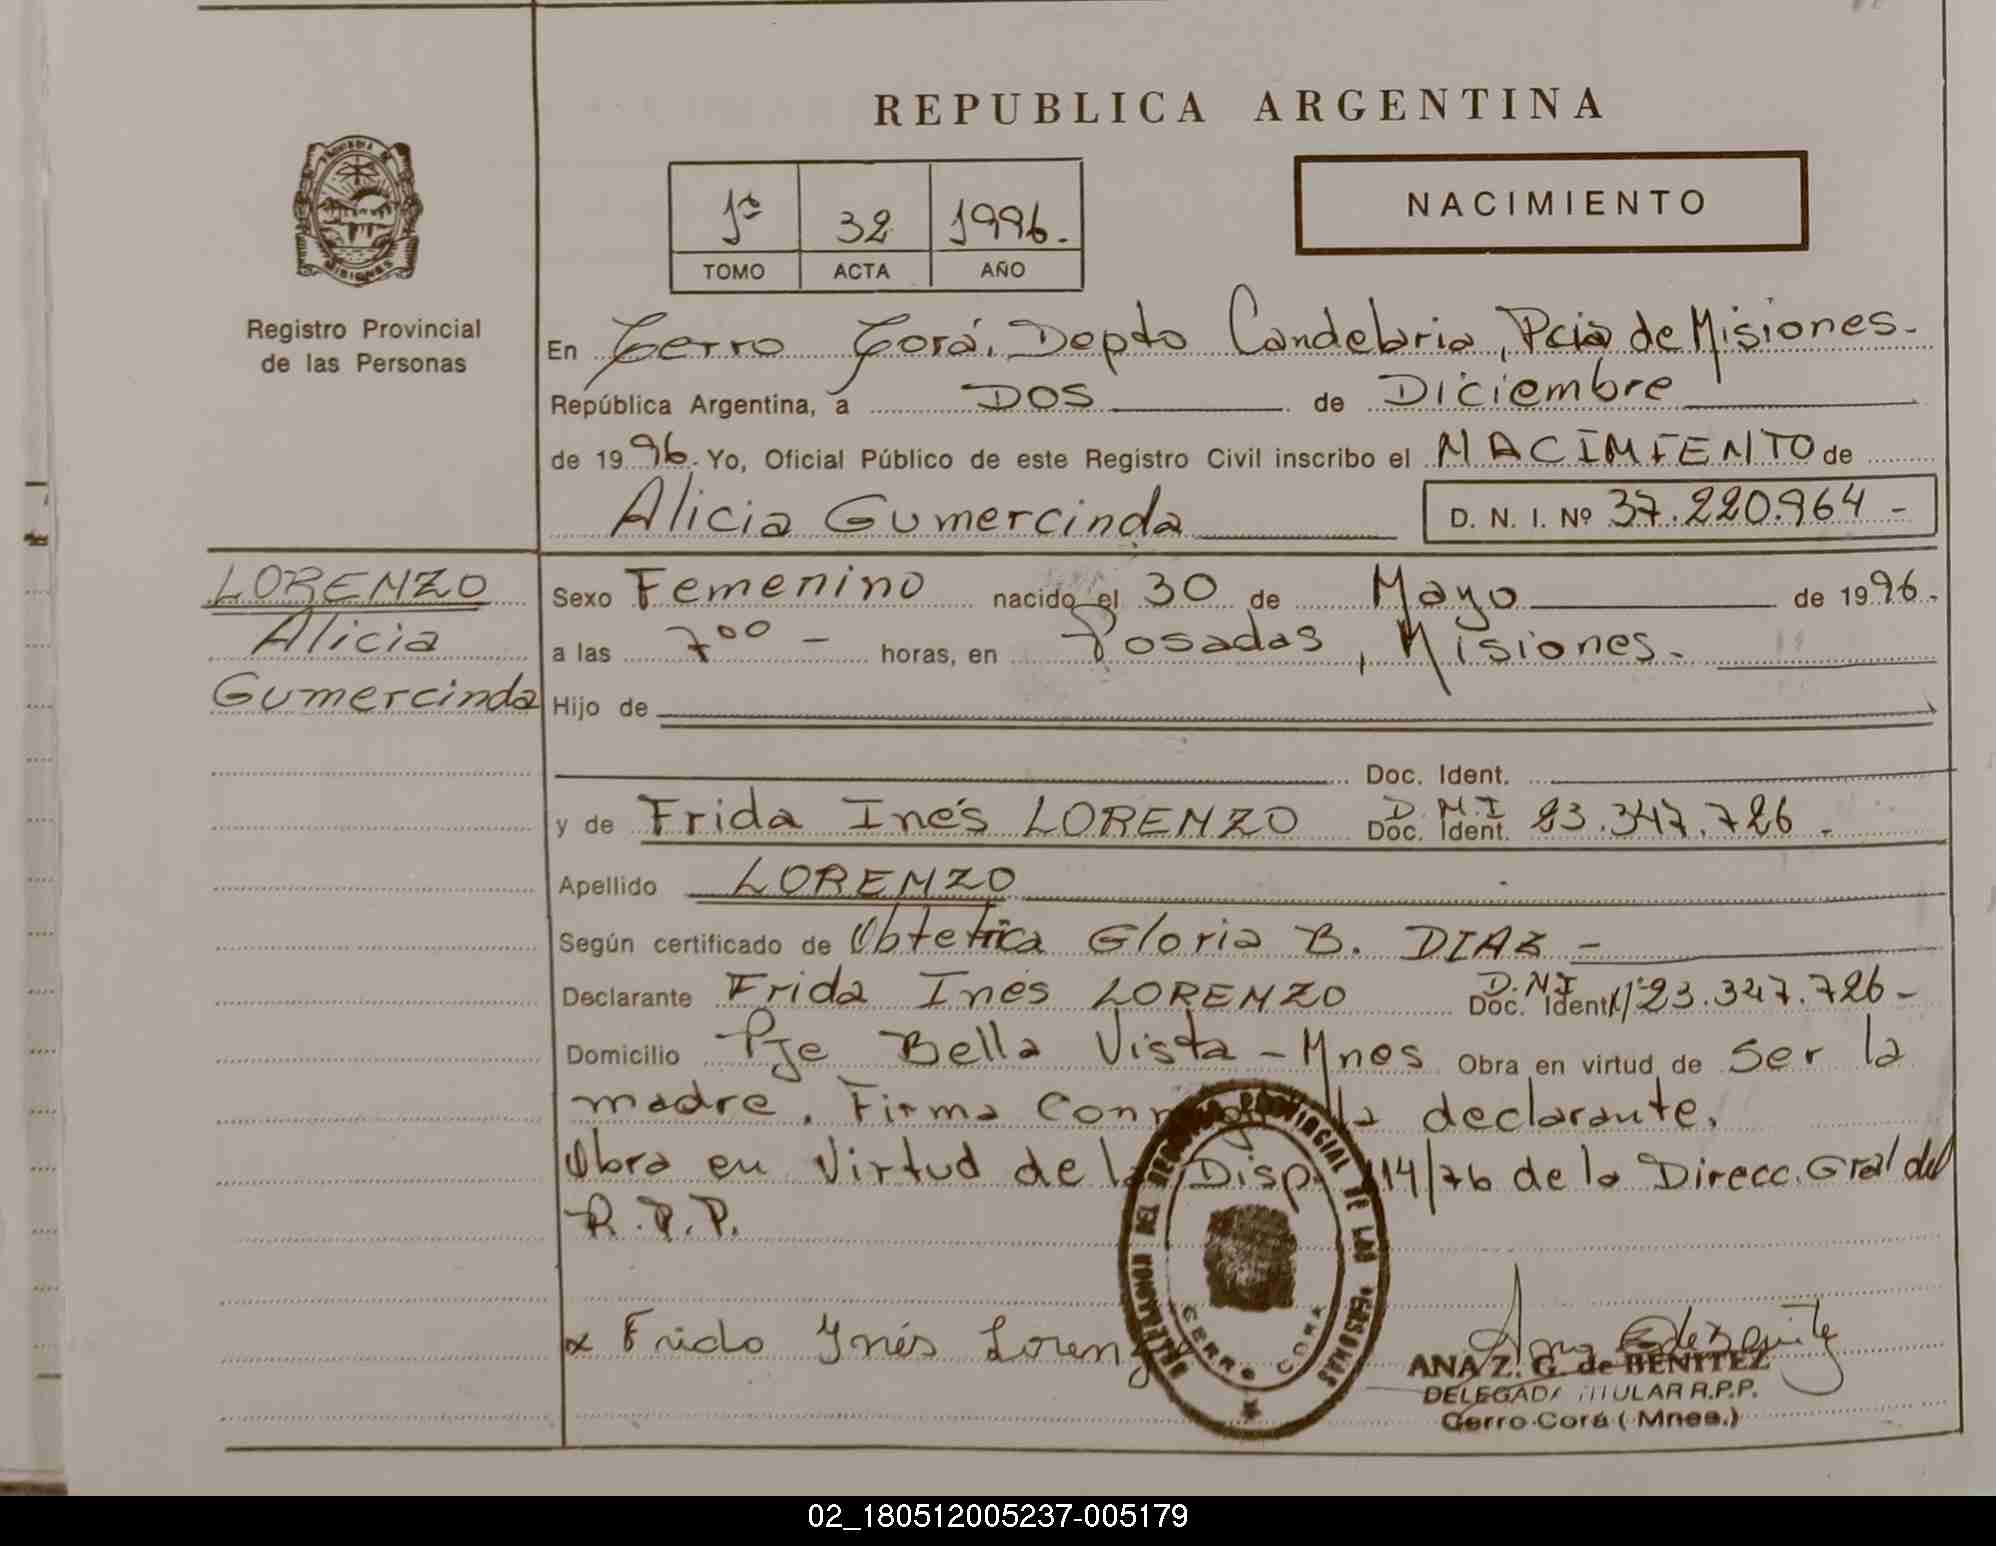 REPUBLICA ARGENTINA
PROVINCIA DE
MISIONES
Registro Provincial
de las Personas
1º 32 1996.
TOMO ACTA AÑO
NACIMIENTO
En Cerro Corá, Depto Candelaria, Pcia de Misiones.
República Argentina, a DOS de Diciembre
de 1996. Yo, Oficial Público de este Registro Civil inscribo el NACIMIENTO de
Alicia Gumercinda D. N. I. Nº 37.220.964 -
LORENZO
Alicia
Gumercinda
Sexo Femenino nacido el 30 de Mayo de 1996.
a las 7⁰⁰ - horas, en Posadas, Misiones.
Hijo de
Doc. Ident.
y de Frida Inés LORENZO D.N.I Doc. Ident. 23.347.726.
Apellido LORENZO
Según certificado de Obtetrica Gloria B. DIAZ -
Declarante Frida Inés LORENZO D.N.I Doc. Ident. 23.347.726 -
Domicilio Pje Bella Vista - Mnes Obra en virtud de ser la
madre. Firma declarante.
Obra en Virtud de la Disp. 114/76 de la Direcc. Gral del
R.P.P.
x Frida Inés Lorenzo
DELEGACION DEL REGISTRO PROVINCIAL DE LAS PERSONAS
CERRO CORA
ANA Z. G. de BENITEZ
DELEGADA TITULAR R.P.P.
Cerro Corá (Mnes.)
02_180512005237-005179